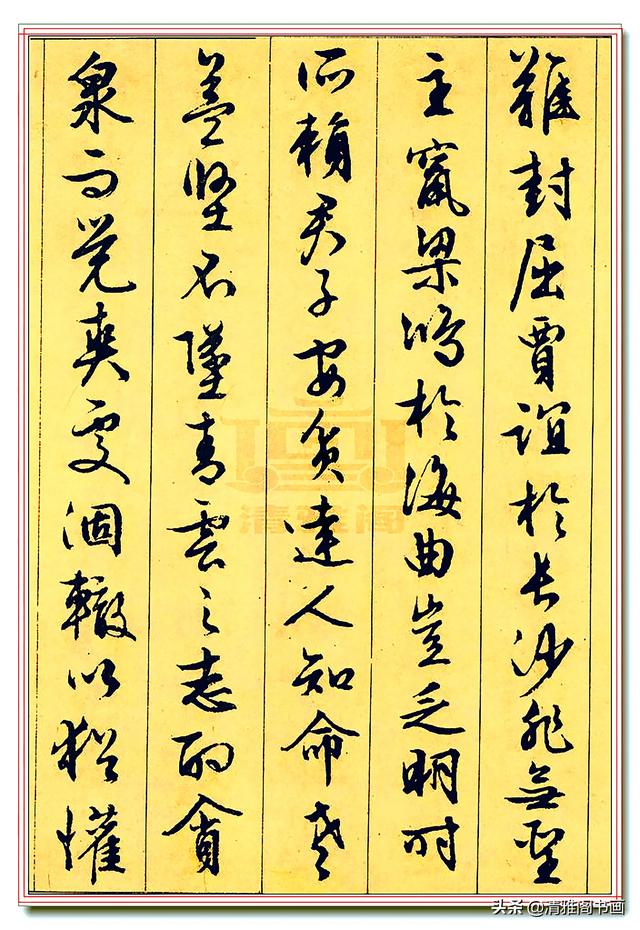 難封屈賈誼於長沙非無聖
主竄梁鴻於海曲豈乏明时
所賴君子安貧達人知命老
益堅不墜青雲之志酌貪
泉而覺爽處涸轍以猶懽
清雅阁
头条 @清雅阁书画